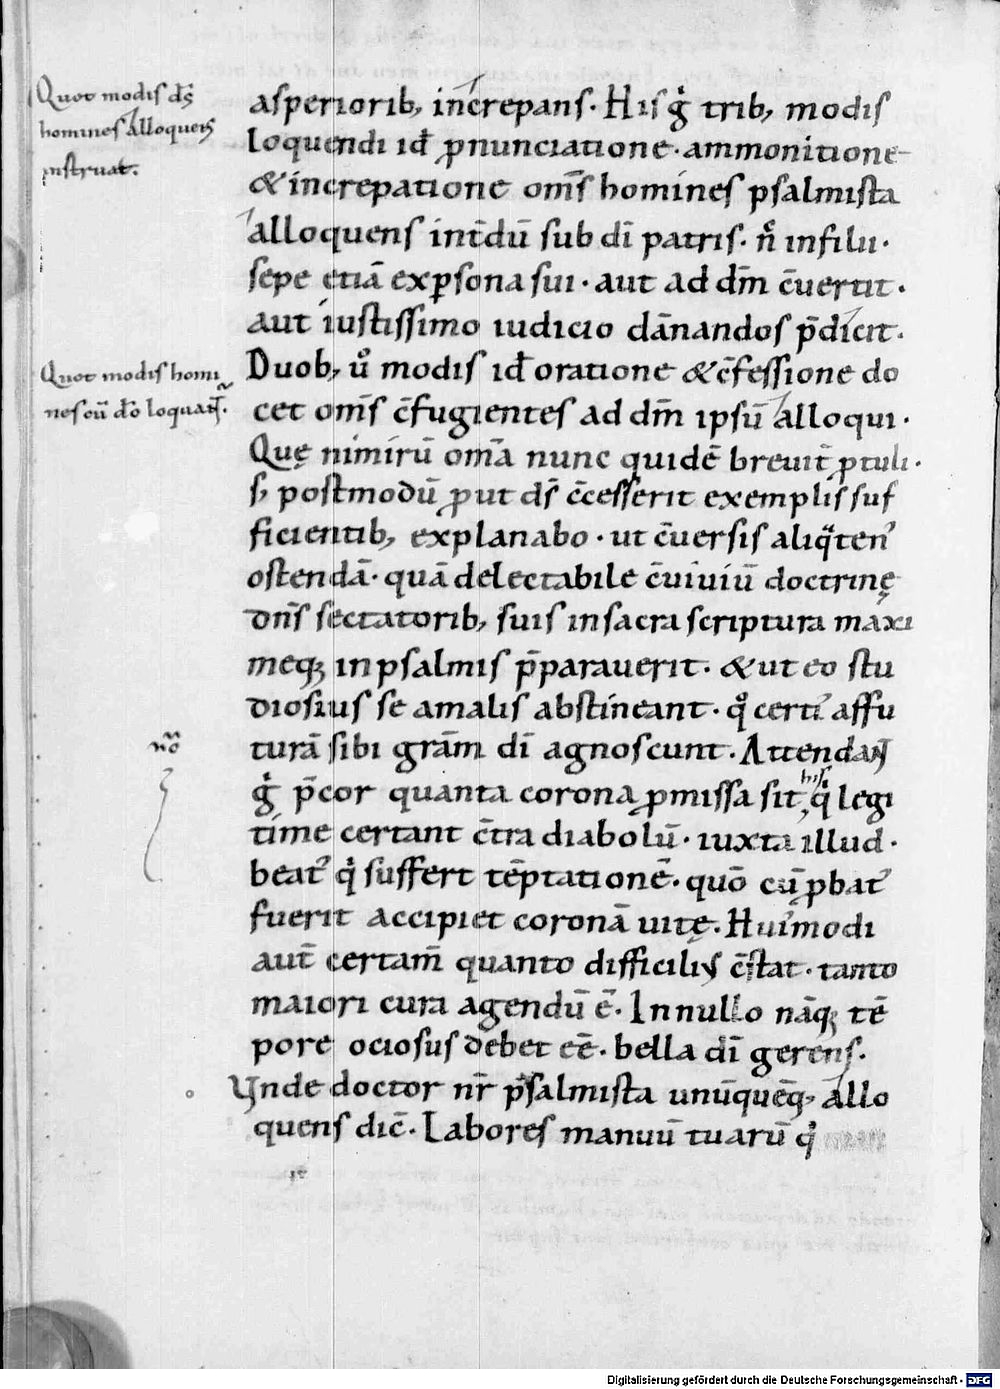 Quot modis ds̄
homines alloquens
instruat.
asperiorib; increpans. His gͦ trib; modis
loquendi id ꝓnunciatione. ammonitione
& increpatione om̄s homines psalmista
alloquens int̄dū sub dī patris. n̄ in filii.
sepe etiā ex ꝑsona sui. aut ad dm̄ c̄uertit.
aut iustissimo iudicio dānandos p̄dicit.
Quot modis homi
nes cū dō loquant̄.
Duob; uͦ modis id oratione & c̄fessione do
cet om̄s c̄fugientes ad dm̄ ipsū alloqui.
Quę nimirū om̄a nunc quidē breuit̄ ꝓtuli.
s; postmodū ꝓut ds̄ c̄cesserit exemplis suf
ficientib; explanabo. ut c̄uersis aliq̄ten᾽
ostendā. quā delectabile c̄uiuiū doctrinę
dn̄s sectatorib; suis in sacra scriptura maxi
meq; in psalmis p̄parauerit. & ut eo stu
diosius se a malis abstineant. qͦ certi᾽ affu
turā sibi gr̄am dī agnoscunt. Attendant
nō
gͦ p̄cor quanta corona ꝓmissa sit his, qͥ legi
time certant c̄tra diabolū. iuxta illud.
beat᾽ qͥ suffert tēptationē. quō cū ꝓbat᾽
fuerit accipiet coronā uitę. Hui᾽modi
aut̄ certam̄ quanto difficili᾽ c̄stat. tanto
maiori cura agendū ē. In nullo nāq; tē
pore ociosus debet eē. bella dī gerens.
Vnde doctor nr̄ psalmista unūquēq; allo
quens dic̄. Labores manuū tuarū qͥ
Digitalisierung gefördert durch die Deutsche Forschungsgemeinschaft - DFG